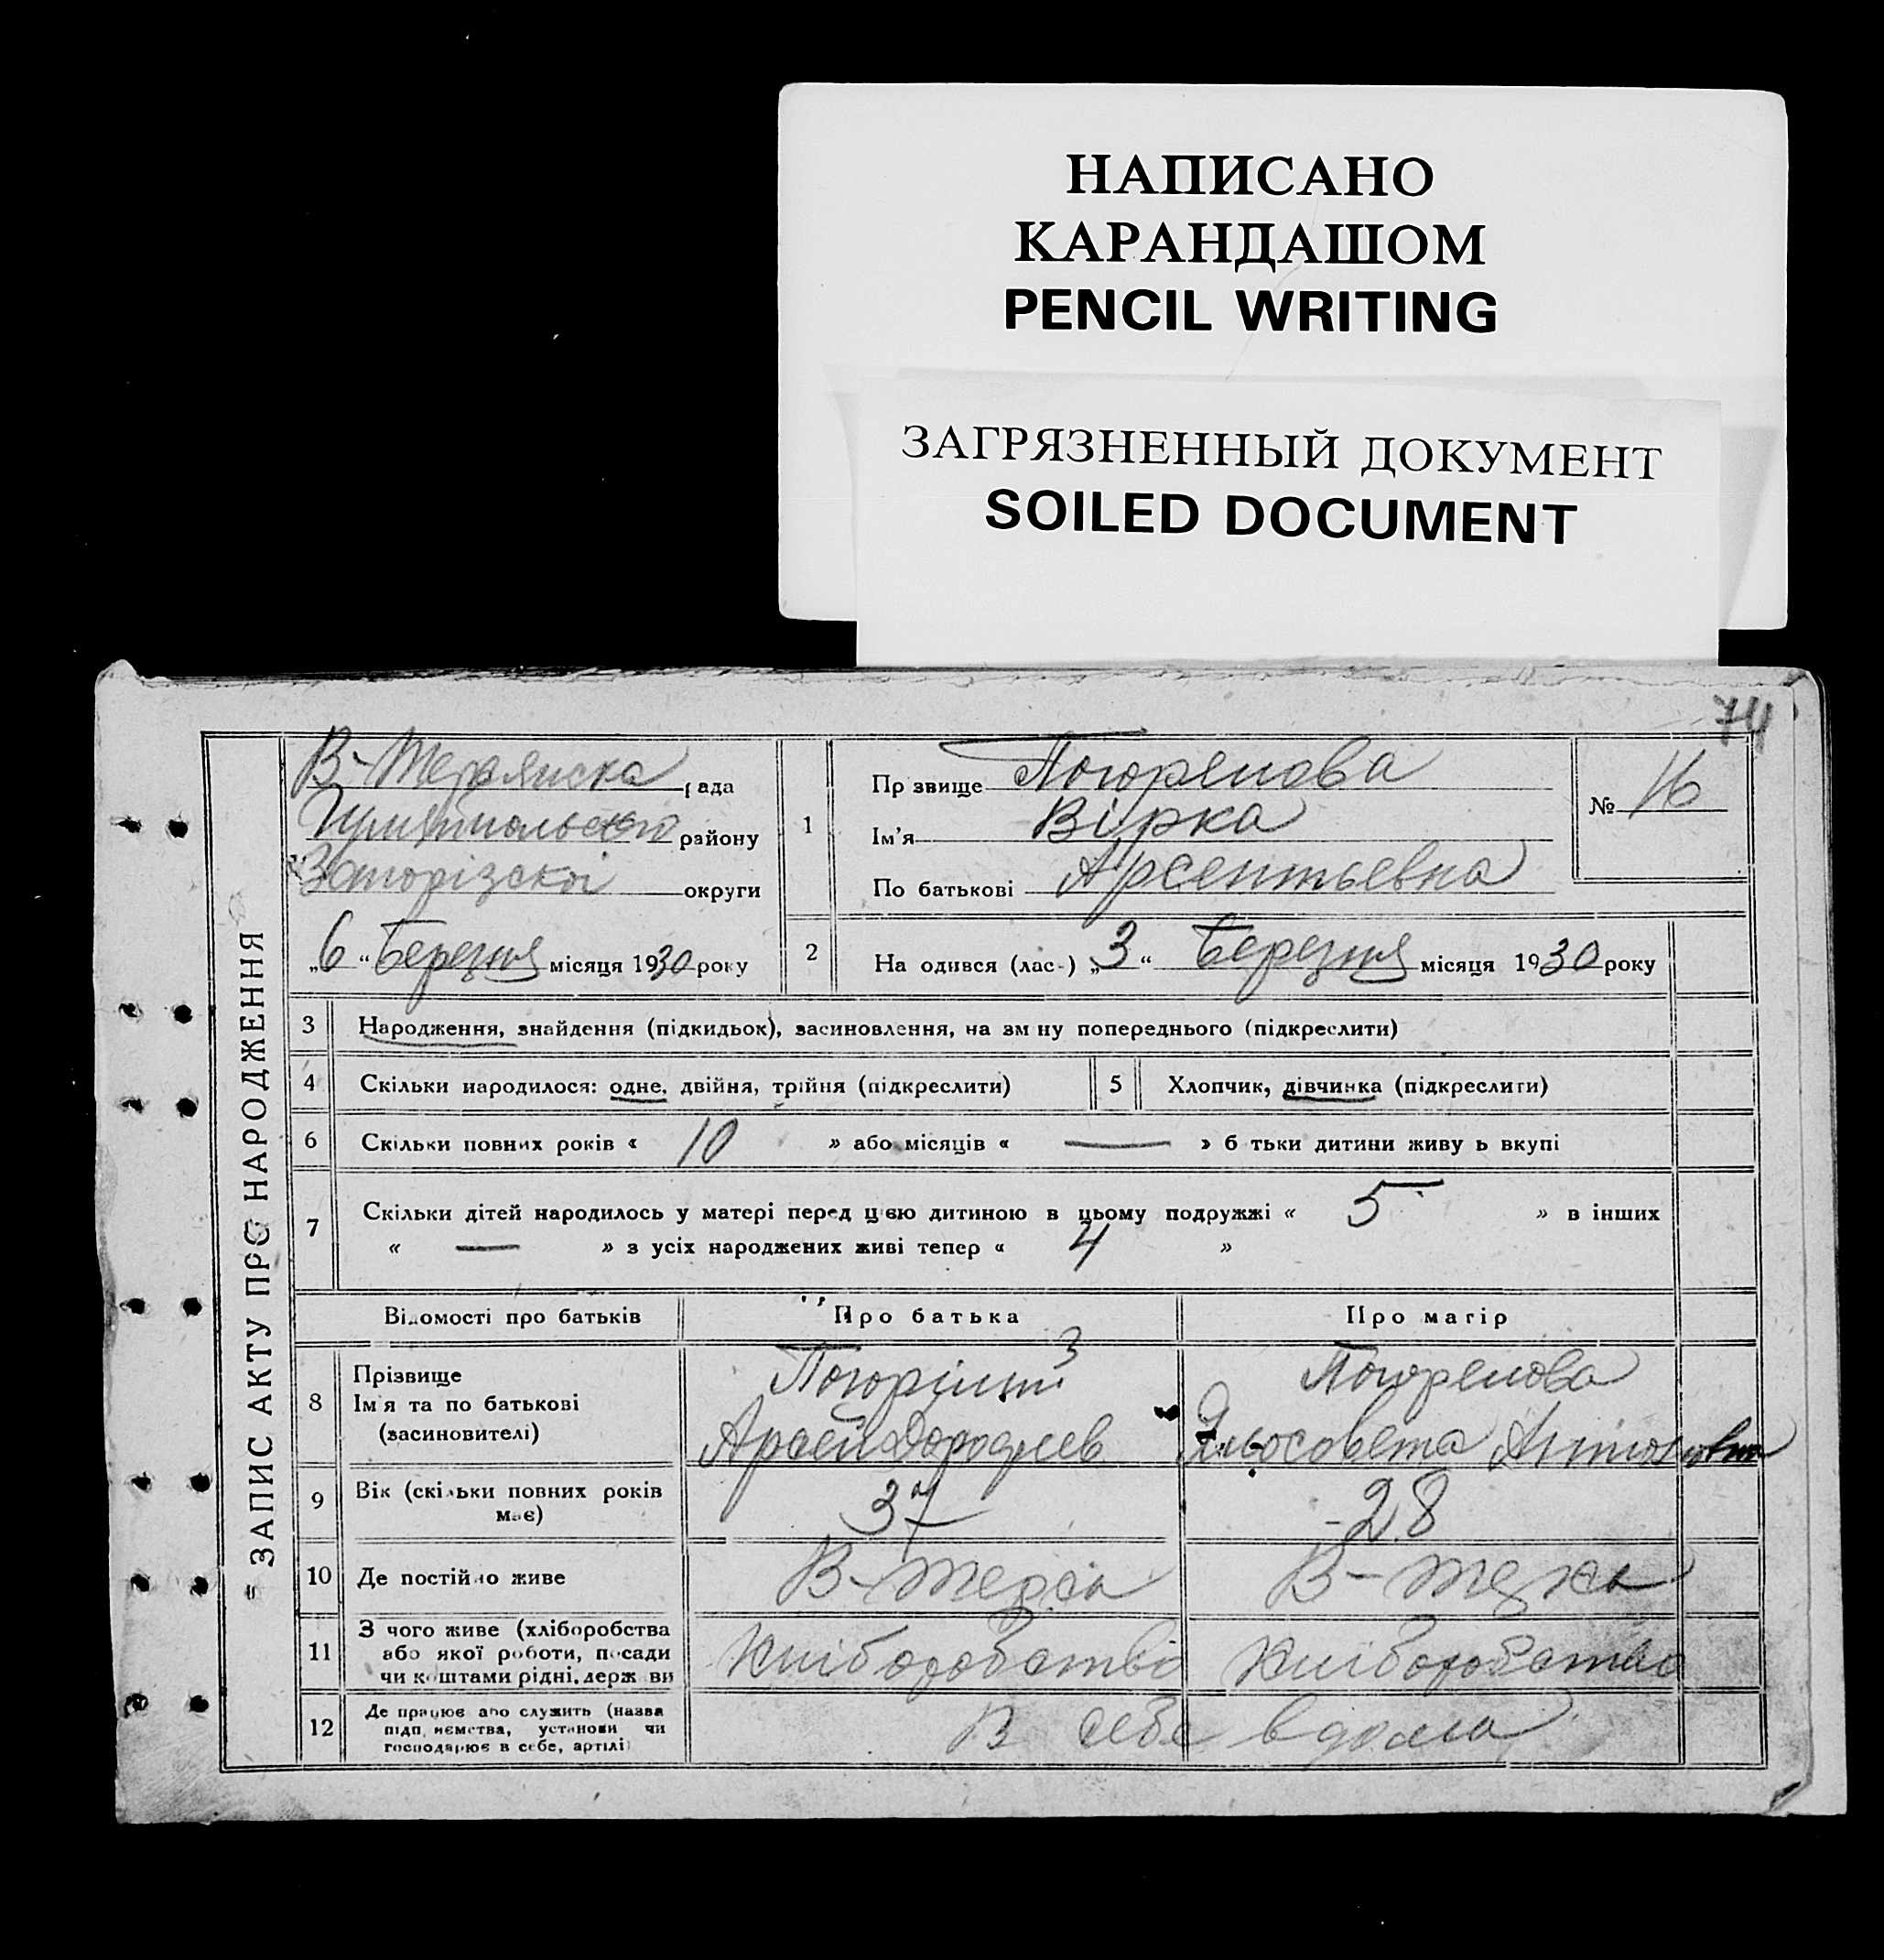 НАПИСАНО
КАРАНДАШОМ
PENCIL WRITING
ЗАГРЯЗНЕННЫЙ ДОКУМЕНТ
SOILED DOCUMENT
74
ЗАПИС АКТУ ПРО НАРОДЖЕННЯ
В-Терянска рада
району
Запорізскої округи
„6“ Березня місяця 1930 року
1
Пр звище Погорелова
Ім'я Вірка
По батькові Арсентьевна
№ 16
2 На одився (лас-) „3“ Березня місяця 1930 року
3 Народження, знайдення (підкидьок), засиновлення, на зм ну попереднього (підкреслити)
4 Скільки народилося: одне, двійня, трійня (підкреслити) 5 Хлопчик, дівчинка (підкреслити)
6 Скільки повних років « 10 » або місяців « — » б тьки дитини живу ь вкупі
7 Скільки дітей народилось у матері перед цією дитиною в цьому подружжі « 5 » в інших
« — » з усіх народжених живі тепер « 4 »
Відомості про батьків Про батька Про матір
8 Прізвище Погорелова
Ім'я та по батькові
(засиновителі) Арсей Дорофеев Антоновна
9 Вік (скільки повних років
має) 37 28
10 Де постійно живе В-Терса В-Терса
11 З чого живе (хліборобства
або якої роботи, посади
чи коштами рідні, держ ви Хліборобство Хліборобство
12 Де працює або служить (назва
підп иємства, установи чи
господарює в себе, артілі) В себе вдома